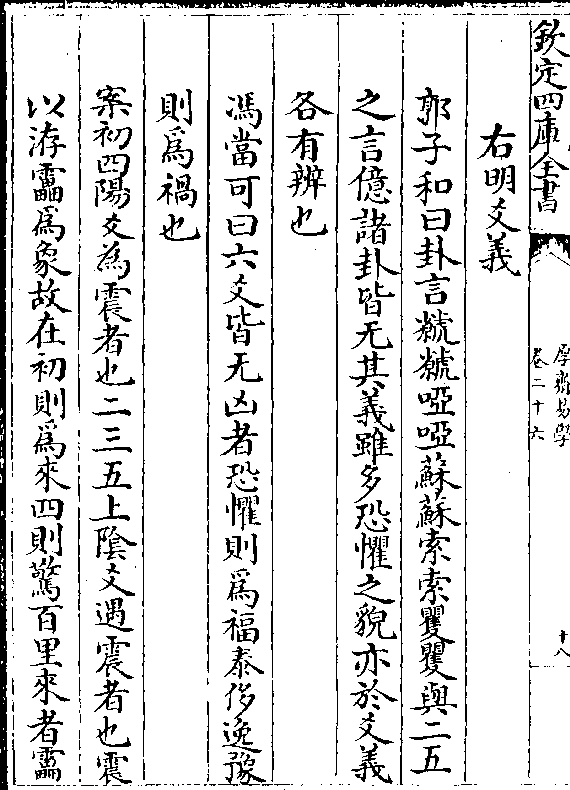 欽定四庫全書
厚齋易學
卷二十六
十八
右明爻義
郭子和曰卦言虩虩啞啞蘇蘇索索矍矍與二五
之言億諸卦皆无其義雖多恐懼之貌亦於爻義
各有辨也
馮當可曰六爻皆无凶者恐懼則爲福泰侈逸豫
則爲禍也
案初四陽爻為震者也二三五上陰爻遇震者也震
以洊靁爲象故在初則爲來四則驚百里來者靁